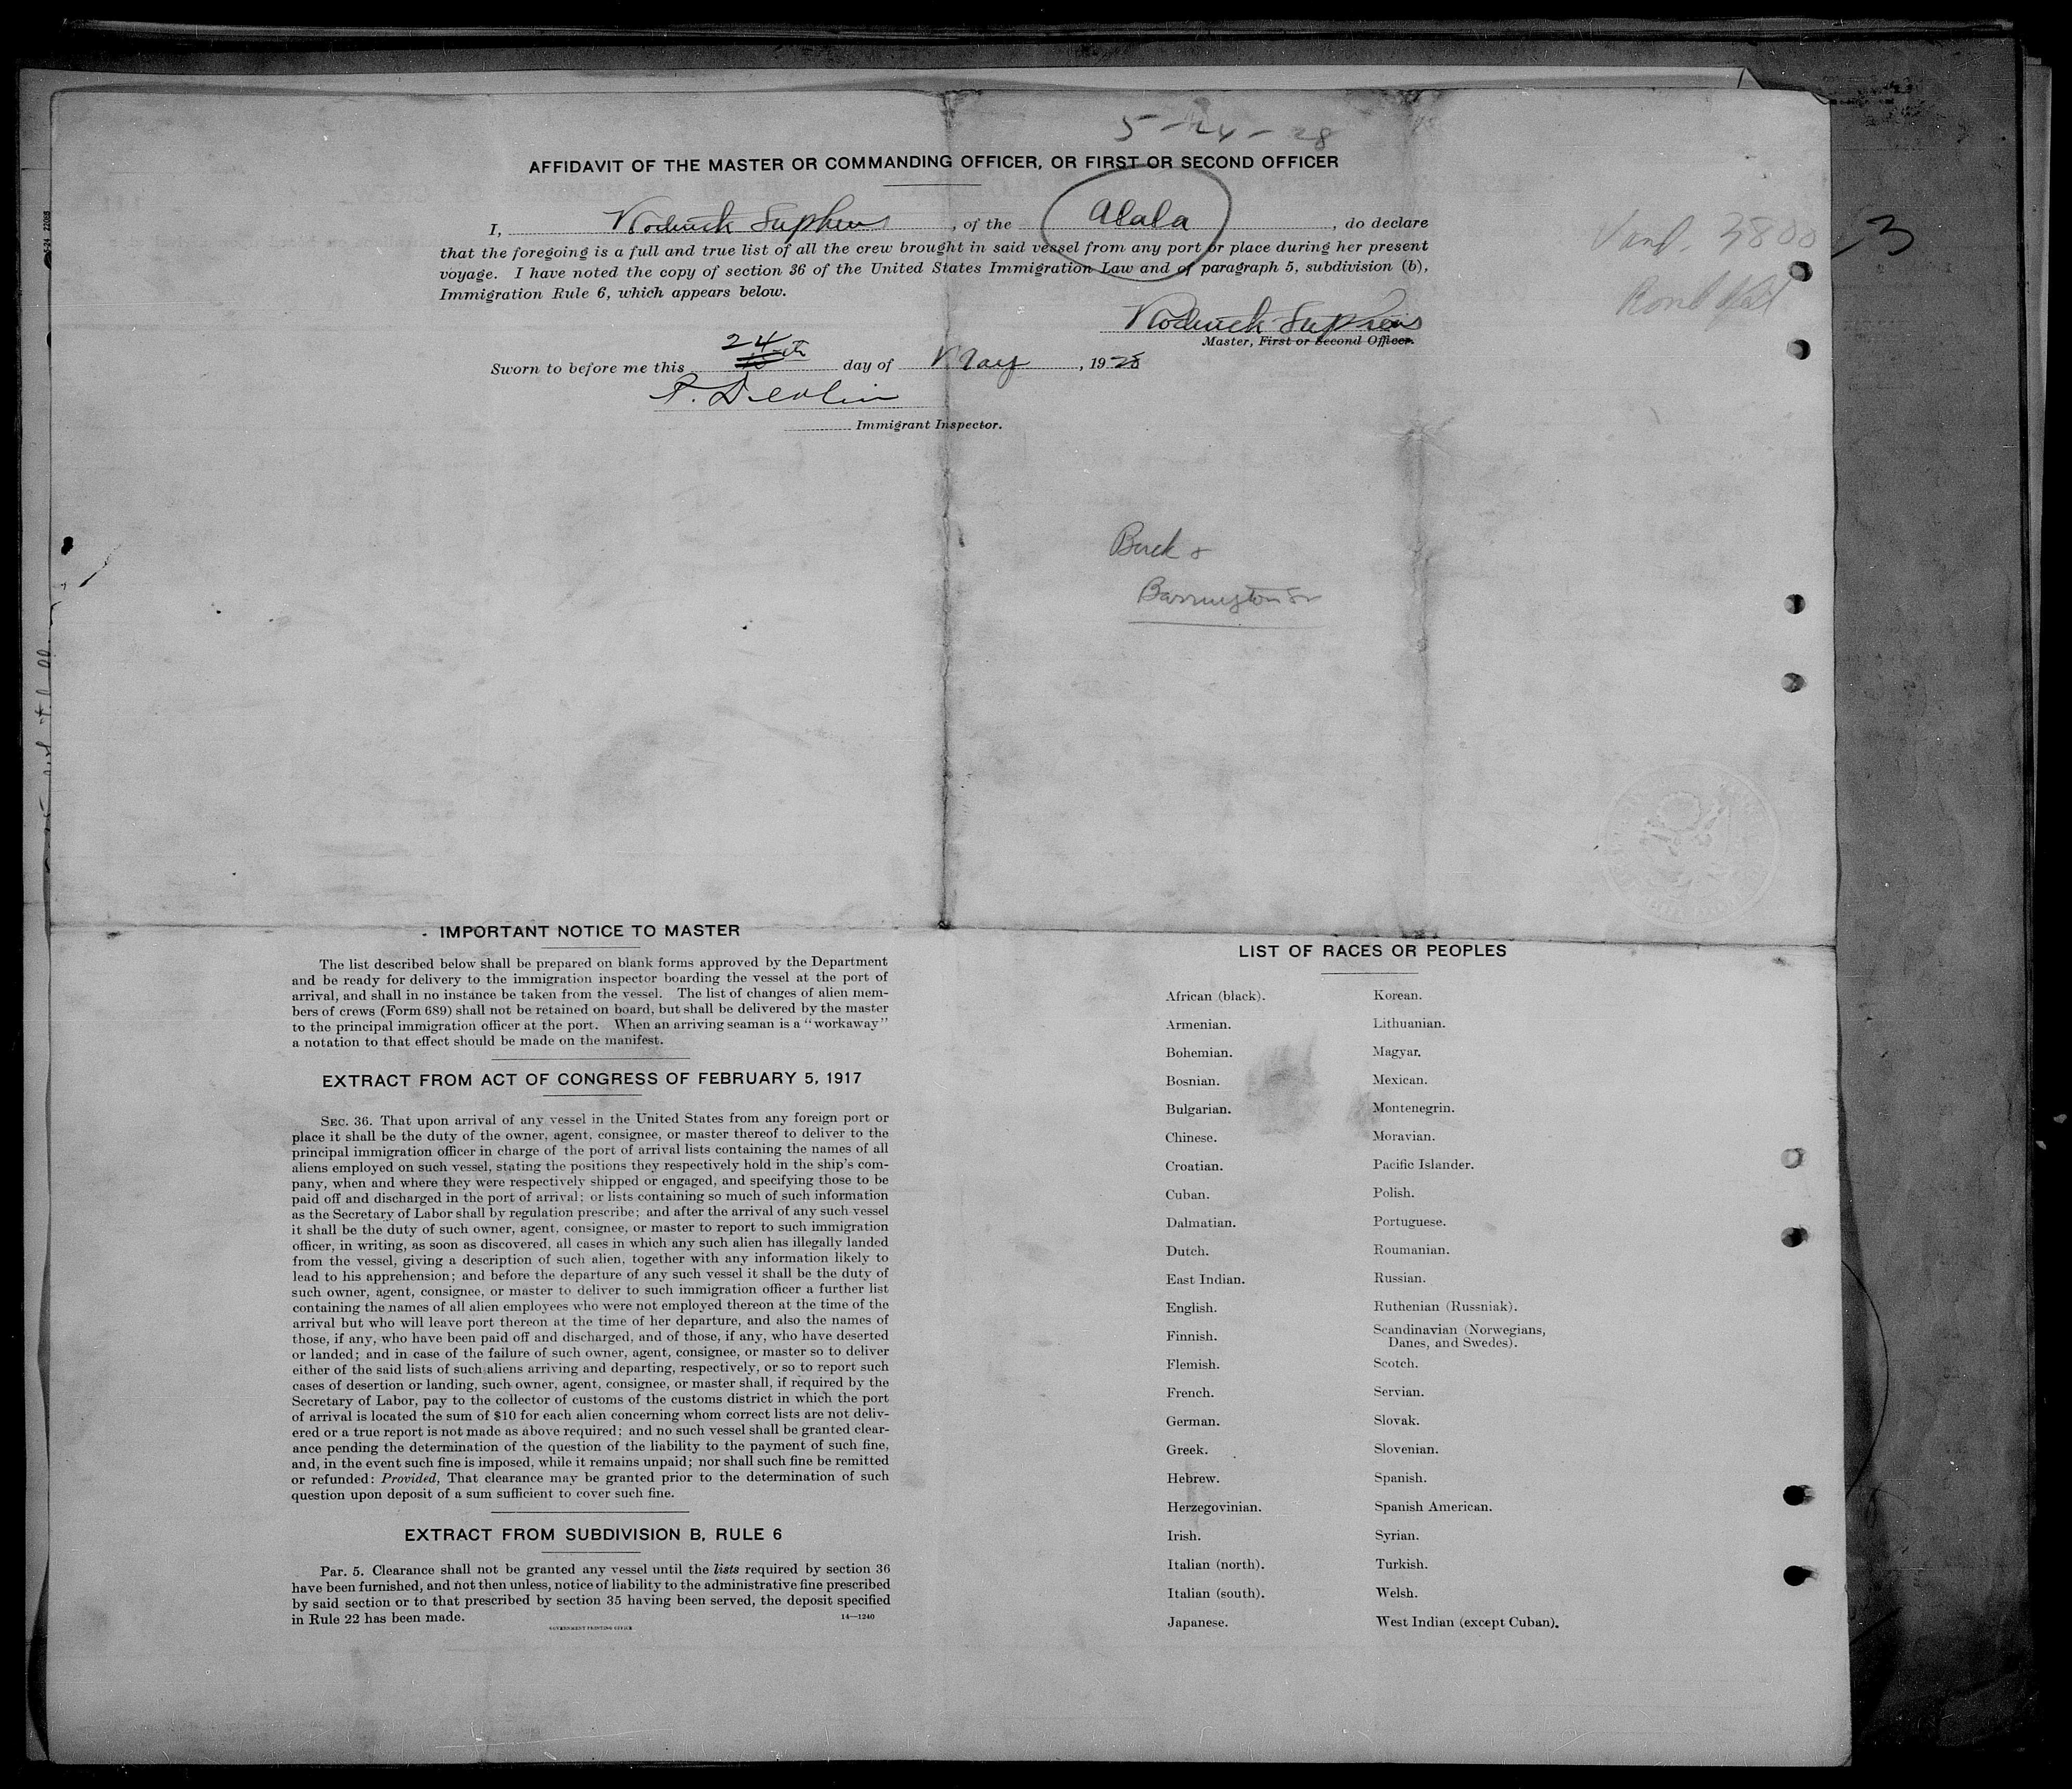 5-24-28
AFFIDAVIT OF THE MASTER OR COMMANDING OFFICER, OR FIRST OR SECOND OFFICER
I, Roderick Stephens, of the Alala, do declare
that the foregoing is a full and true list of all the crew brought in said vessel from any port or place during her present
voyage. I have noted the copy of section 36 of the United States Immigration Law and of paragraph 5, subdivision (b),
Immigration Rule 6, which appears below.
3800
3
Roderick Stephens
Master, First or Second Officer.
24th
Sworn to before me this day of May, 1928
P. Devlin
Immigrant Inspector.
Burek &
Barrington
IMPORTANT NOTICE TO MASTER
The list described below shall be prepared on blank forms approved by the Department
and be ready for delivery to the immigration inspector boarding the vessel at the port of
arrival, and shall in no instance be taken from the vessel. The list of changes of alien mem-
bers of crews (Form 689) shall not be retained on board, but shall be delivered by the master
to the principal immigration officer at the port. When an arriving seaman is a "workaway"
a notation to that effect should be made on the manifest.
EXTRACT FROM ACT OF CONGRESS OF FEBRUARY 5, 1917
SEC. 36. That upon arrival of any vessel in the United States from any foreign port or
place it shall be the duty of the owner, agent, consignee, or master thereof to deliver to the
principal immigration officer in charge of the port of arrival lists containing the names of all
aliens employed on such vessel, stating the positions they respectively hold in the ship's com-
pany, when and where they were respectively shipped or engaged, and specifying those to be
paid off and discharged in the port of arrival; or lists containing so much of such information
as the Secretary of Labor shall by regulation prescribe; and after the arrival of any such vessel
it shall be the duty of such owner, agent, consignee, or master to report to such immigration
officer, in writing, as soon as discovered, all cases in which any such alien has illegally landed
from the vessel, giving a description of such alien, together with any information likely to
lead to his apprehension; and before the departure of any such vessel it shall be the duty of
such owner, agent, consignee, or master to deliver to such immigration officer a further list
containing the names of all alien employees who were not employed thereon at the time of the
arrival but who will leave port thereon at the time of her departure, and also the names of
those, if any, who have been paid off and discharged, and of those, if any, who have deserted
or landed; and in case of the failure of such owner, agent, consignee, or master so to deliver
either of the said lists of such aliens arriving and departing, respectively, or so to report such
cases of desertion or landing, such owner, agent, consignee, or master shall, if required by the
Secretary of Labor, pay to the collector of customs of the customs district in which the port
of arrival is located the sum of $10 for each alien concerning whom correct lists are not deliv-
ered or a true report is not made as above required; and no such vessel shall be granted clear-
ance pending the determination of the question of the liability to the payment of such fine,
and, in the event such fine is imposed, while it remains unpaid; nor shall such fine be remitted
or refunded: Provided, That clearance may be granted prior to the determination of such
question upon deposit of a sum sufficient to cover such fine.
EXTRACT FROM SUBDIVISION B, RULE 6
Par. 5. Clearance shall not be granted any vessel until the lists required by section 36
have been furnished, and not then unless, notice of liability to the administrative fine prescribed
by said section or to that prescribed by section 35 having been served, the deposit specified
in Rule 22 has been made.
14—1240
GOVERNMENT PRINTING OFFICE
LIST OF RACES OR PEOPLES
African (black).
Armenian.
Bohemian.
Bosnian.
Bulgarian.
Chinese.
Croatian.
Cuban.
Dalmatian.
Dutch.
East Indian.
English.
Finnish.
Flemish.
French.
German.
Greek.
Hebrew.
Herzegovinian.
Irish.
Italian (north).
Italian (south).
Japanese.
Korean.
Lithuanian.
Magyar.
Mexican.
Montenegrin.
Moravian.
Pacific Islander.
Polish.
Portuguese.
Roumanian.
Russian.
Ruthenian (Russniak).
Scandinavian (Norwegians,
Danes, and Swedes).
Scotch.
Servian.
Slovak.
Slovenian.
Spanish.
Spanish American.
Syrian.
Turkish.
Welsh.
West Indian (except Cuban).